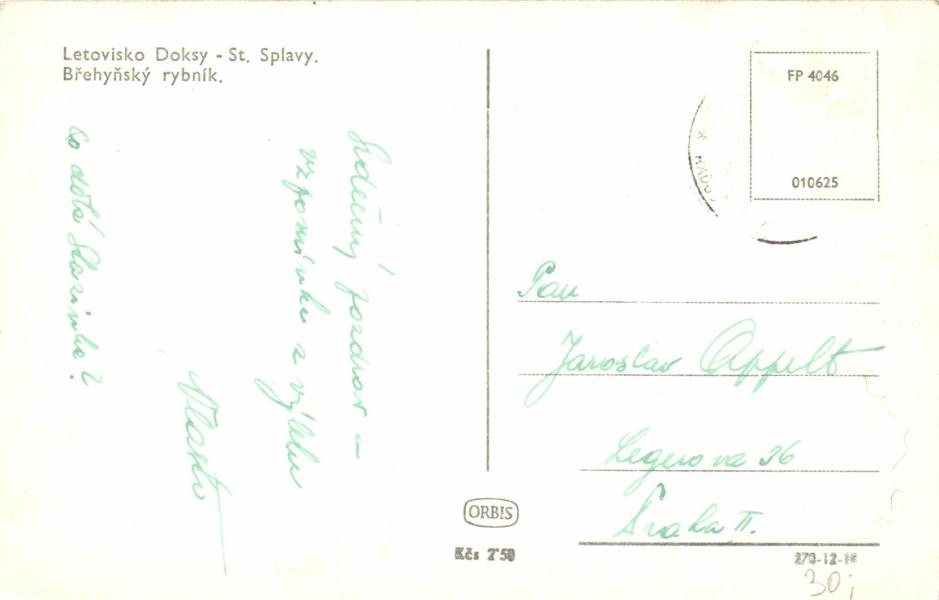 Letovisko Doksy - St. Splavy.
Břehyňský rybník.
FP 4046
010625
Srdečný pozdrav a
vzpomínku z výletu
Vlasta
Co dělá Slavinka?
Pan
Jaroslav Appelt
Legerova 36
Praha II.
ORBIS
Kčs 2'50
30